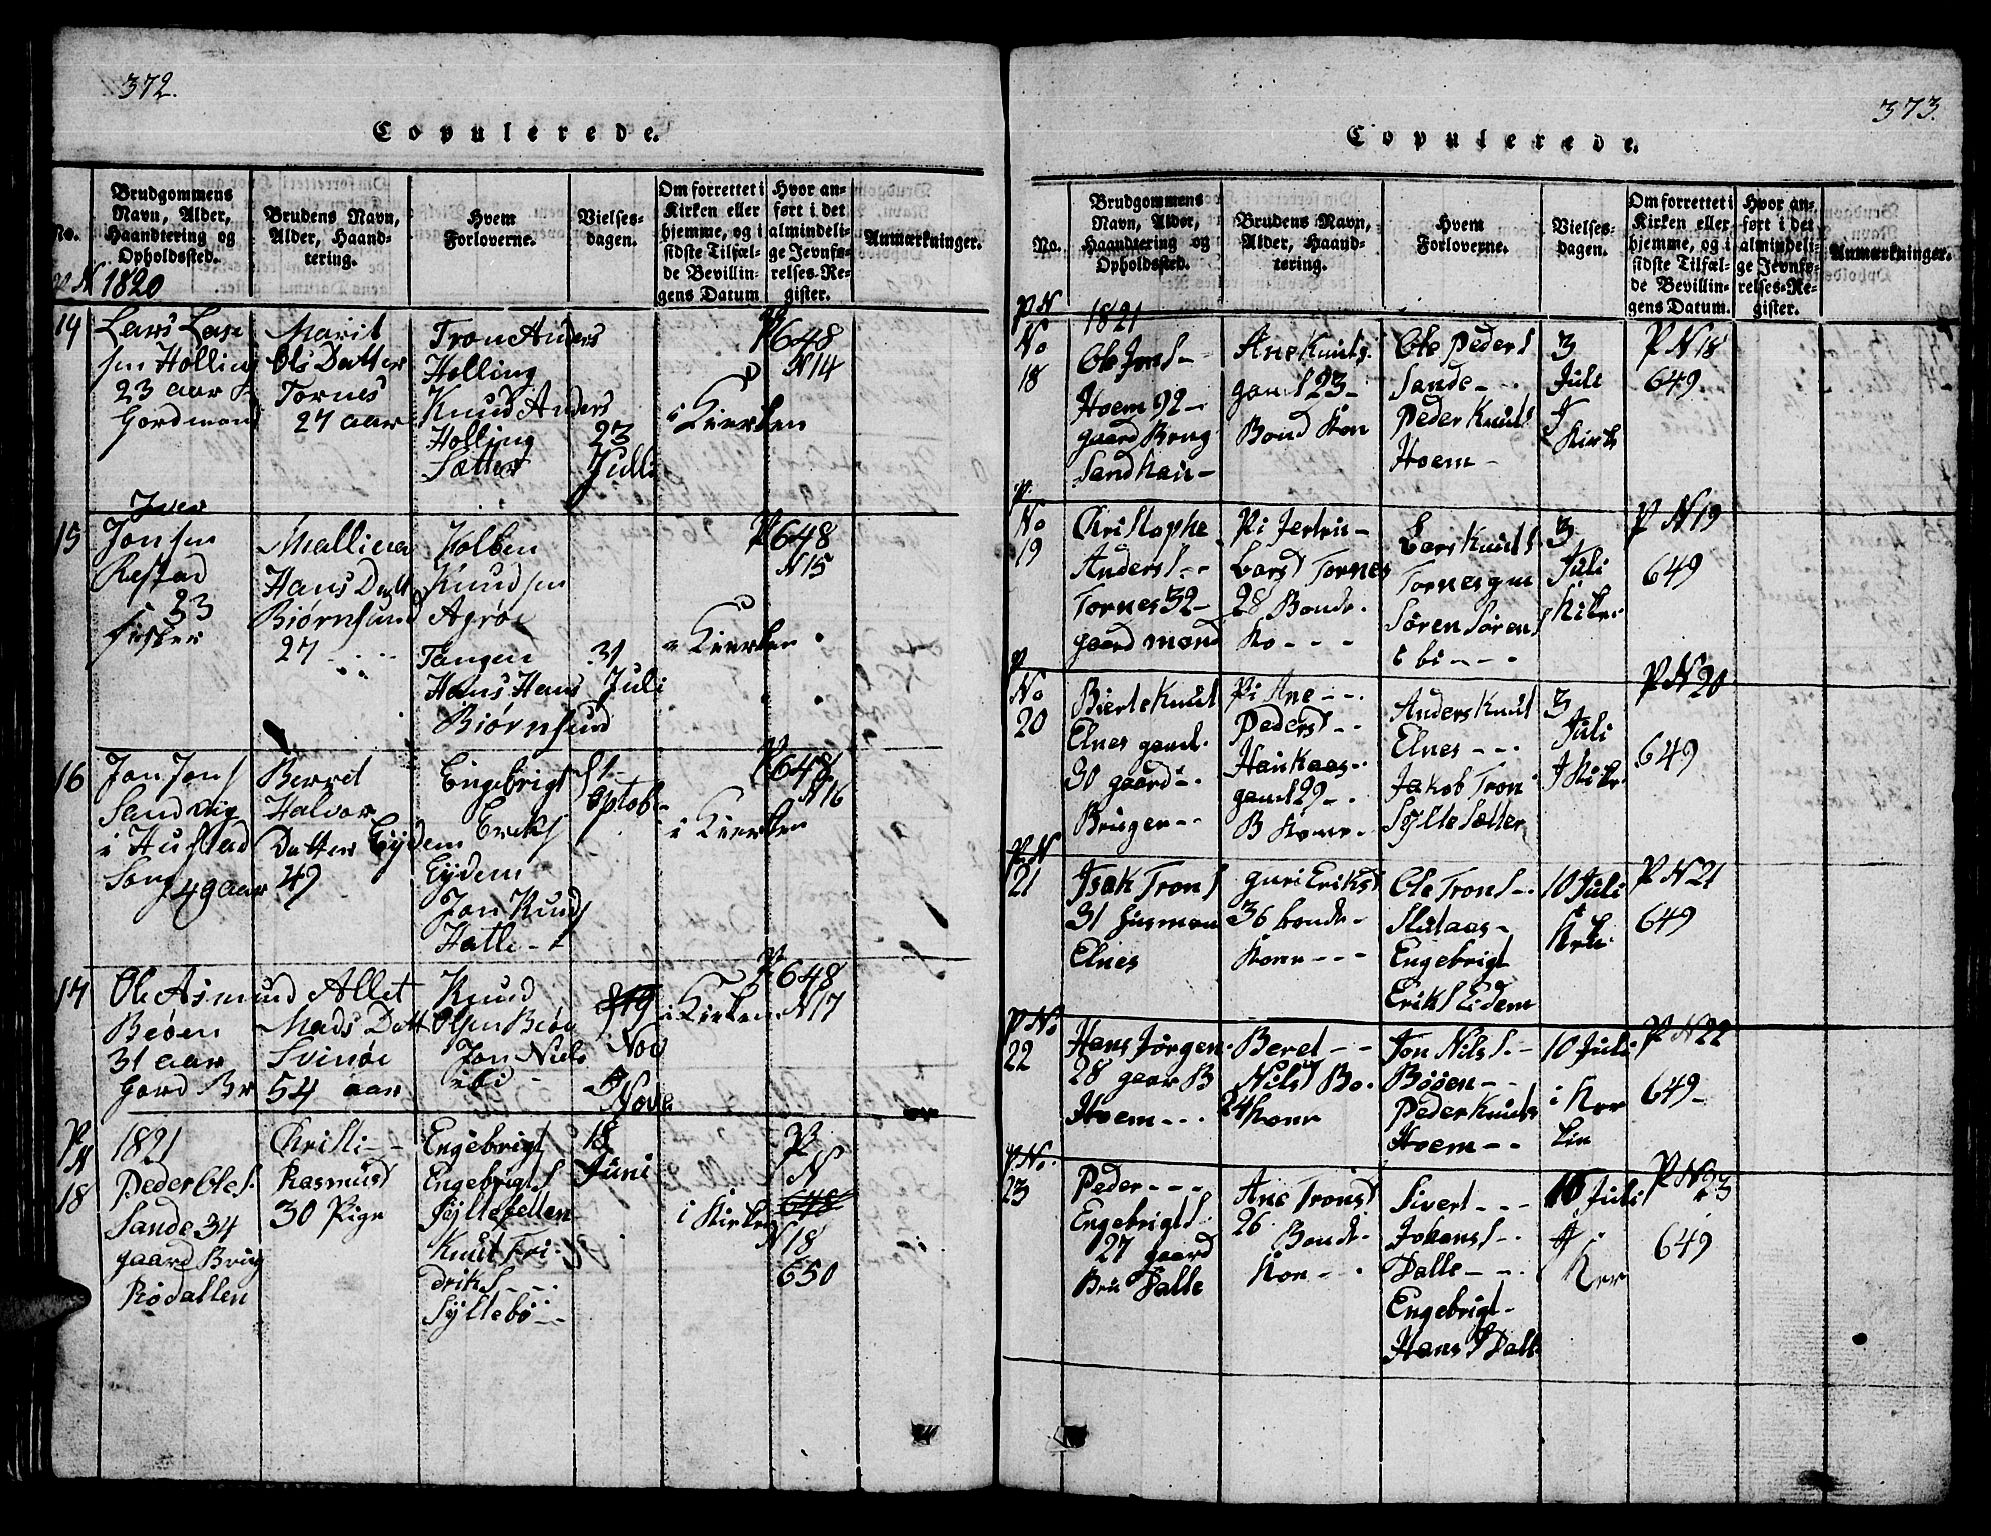 372.
Copulerede.
No.
Brudgommens
Navn, Alder,
Haandtering og
Opholdssted.
Brudens Navn,
Alder, Haand-
tering.
Hvem
Forloverne.
Vielses-
dagen.
Om forrettet i
Kirken eller
hjemme, og i
sidste Tilfæl-
de Bevillin-
gens Datum
Hvor an-
ført i det
almindeli-
ge Jevnfø-
relses-Re-
gister.
Anmærkninger.
N 1820
14
Lars Lar
sen Holling
23 aar
Gordmand
Marit
Ols Datter
Tornes
27 aar
Tron Anders
Holling
Knud Anders
Holling
Sætter
23
Julli
i Kierken
P 648
N14
15
Iver
Jonsen
Restad
33
fisker
Malliena
Hans Datt
Biørnsund
27
Kolben
Knudsen
Agrøe
Tangen
Hans Hans
Biørnsund
31
Juli
i Kierken
P 648
N15
16
Jon Jons
Sandvig
i Hustad
Song 49 aar
Berret
Halvor
Datter Eydem
49
Engebrigt
Eriks
Eydem
Jon Knuds
Hatle
S 1
Optob
i Kierken
P 648
N16
17
Ole Asmund
Beøen
31 aar
Gord Br
Allet
Mads Datt
Svinøe
54 aar
Knud
Olsen Beøe
Jon Niels
ibi
19
Nov
Nove
i Kirken
P 648
N17
P N
18
1821
Peder Ole S.
Sande 34
gaard Brug
Rødallen
Christi
Rasmusd
30 Pige
Engebrigt
Engebrigt S
Syltesetten
Knut Fri
driks
Syltebø
18
Juni
i Kirken
P
N
648
N 18
650
373.
Copulerede.
No.
Brudgommens
Navn, Alder,
Haandtering og
Opholdssted.
Brudens Navn,
Alder, Haand-
tering.
Hvem
Forloverne.
Vielses-
dagen.
Om forrettet i
Kirken eller
hjemme, og i
sidste Tilfæl-
de Bevillin-
gens Datum.
Hvor an-
ført i det
almindeli-
ge Jevnfø-
relses-Re-
gister.
Anmærkninger.
P N
1821
No
18
Ole Jons
Hoem 92
gaard Brug
Ane Knuts
gaml 23
Bond Kon
Ole Peders
Sande
Peder Knuts
Hoem
3
Juli
I
Kirk
P N 18
649
P.
No
19
Christophe
Anders
Tornes 32
gaard mand
Pi Jertru
Larsd Tornes
28 Bonde
Ko
Lars Knuts
Tornes
Søren Sørens
i bi
3
Juli
P N 19
649
P
No
20
Bierte Knut
Elnes gaml.
30 gaard
Bruger
Pi Ane
Pedersd
Haukaas
gaml 29
B Kone
Anders Knut
Elnes
Jakob Tron
Sylte Sætter
3
Juli
P N 20
649
P N
21
Isak Trons
31 husman
Elnes
guri Eriksd
36 bonde
Kone
Ole Trons
Slutaas
Engebrigt
Eriks Eidem
10 Juli
P N 21
649
P No
22
Hans Jørgen
28 gaar B
Hoem
Beret
Nilsd Bo.
24 Kone
Jon Nils
Bøøen
Peder Knuts
Hoem
10 Juli
i Ker
kin
P N 22
649
P No.
23
Peder
Engebrigts
27 gaard
Bru Dalle
Ane Tronsd
26
Bonde
Kon
Sivert
Johans
Dalle
Engebrigt
Hans Dall
Juli
Ker
P N 23
649